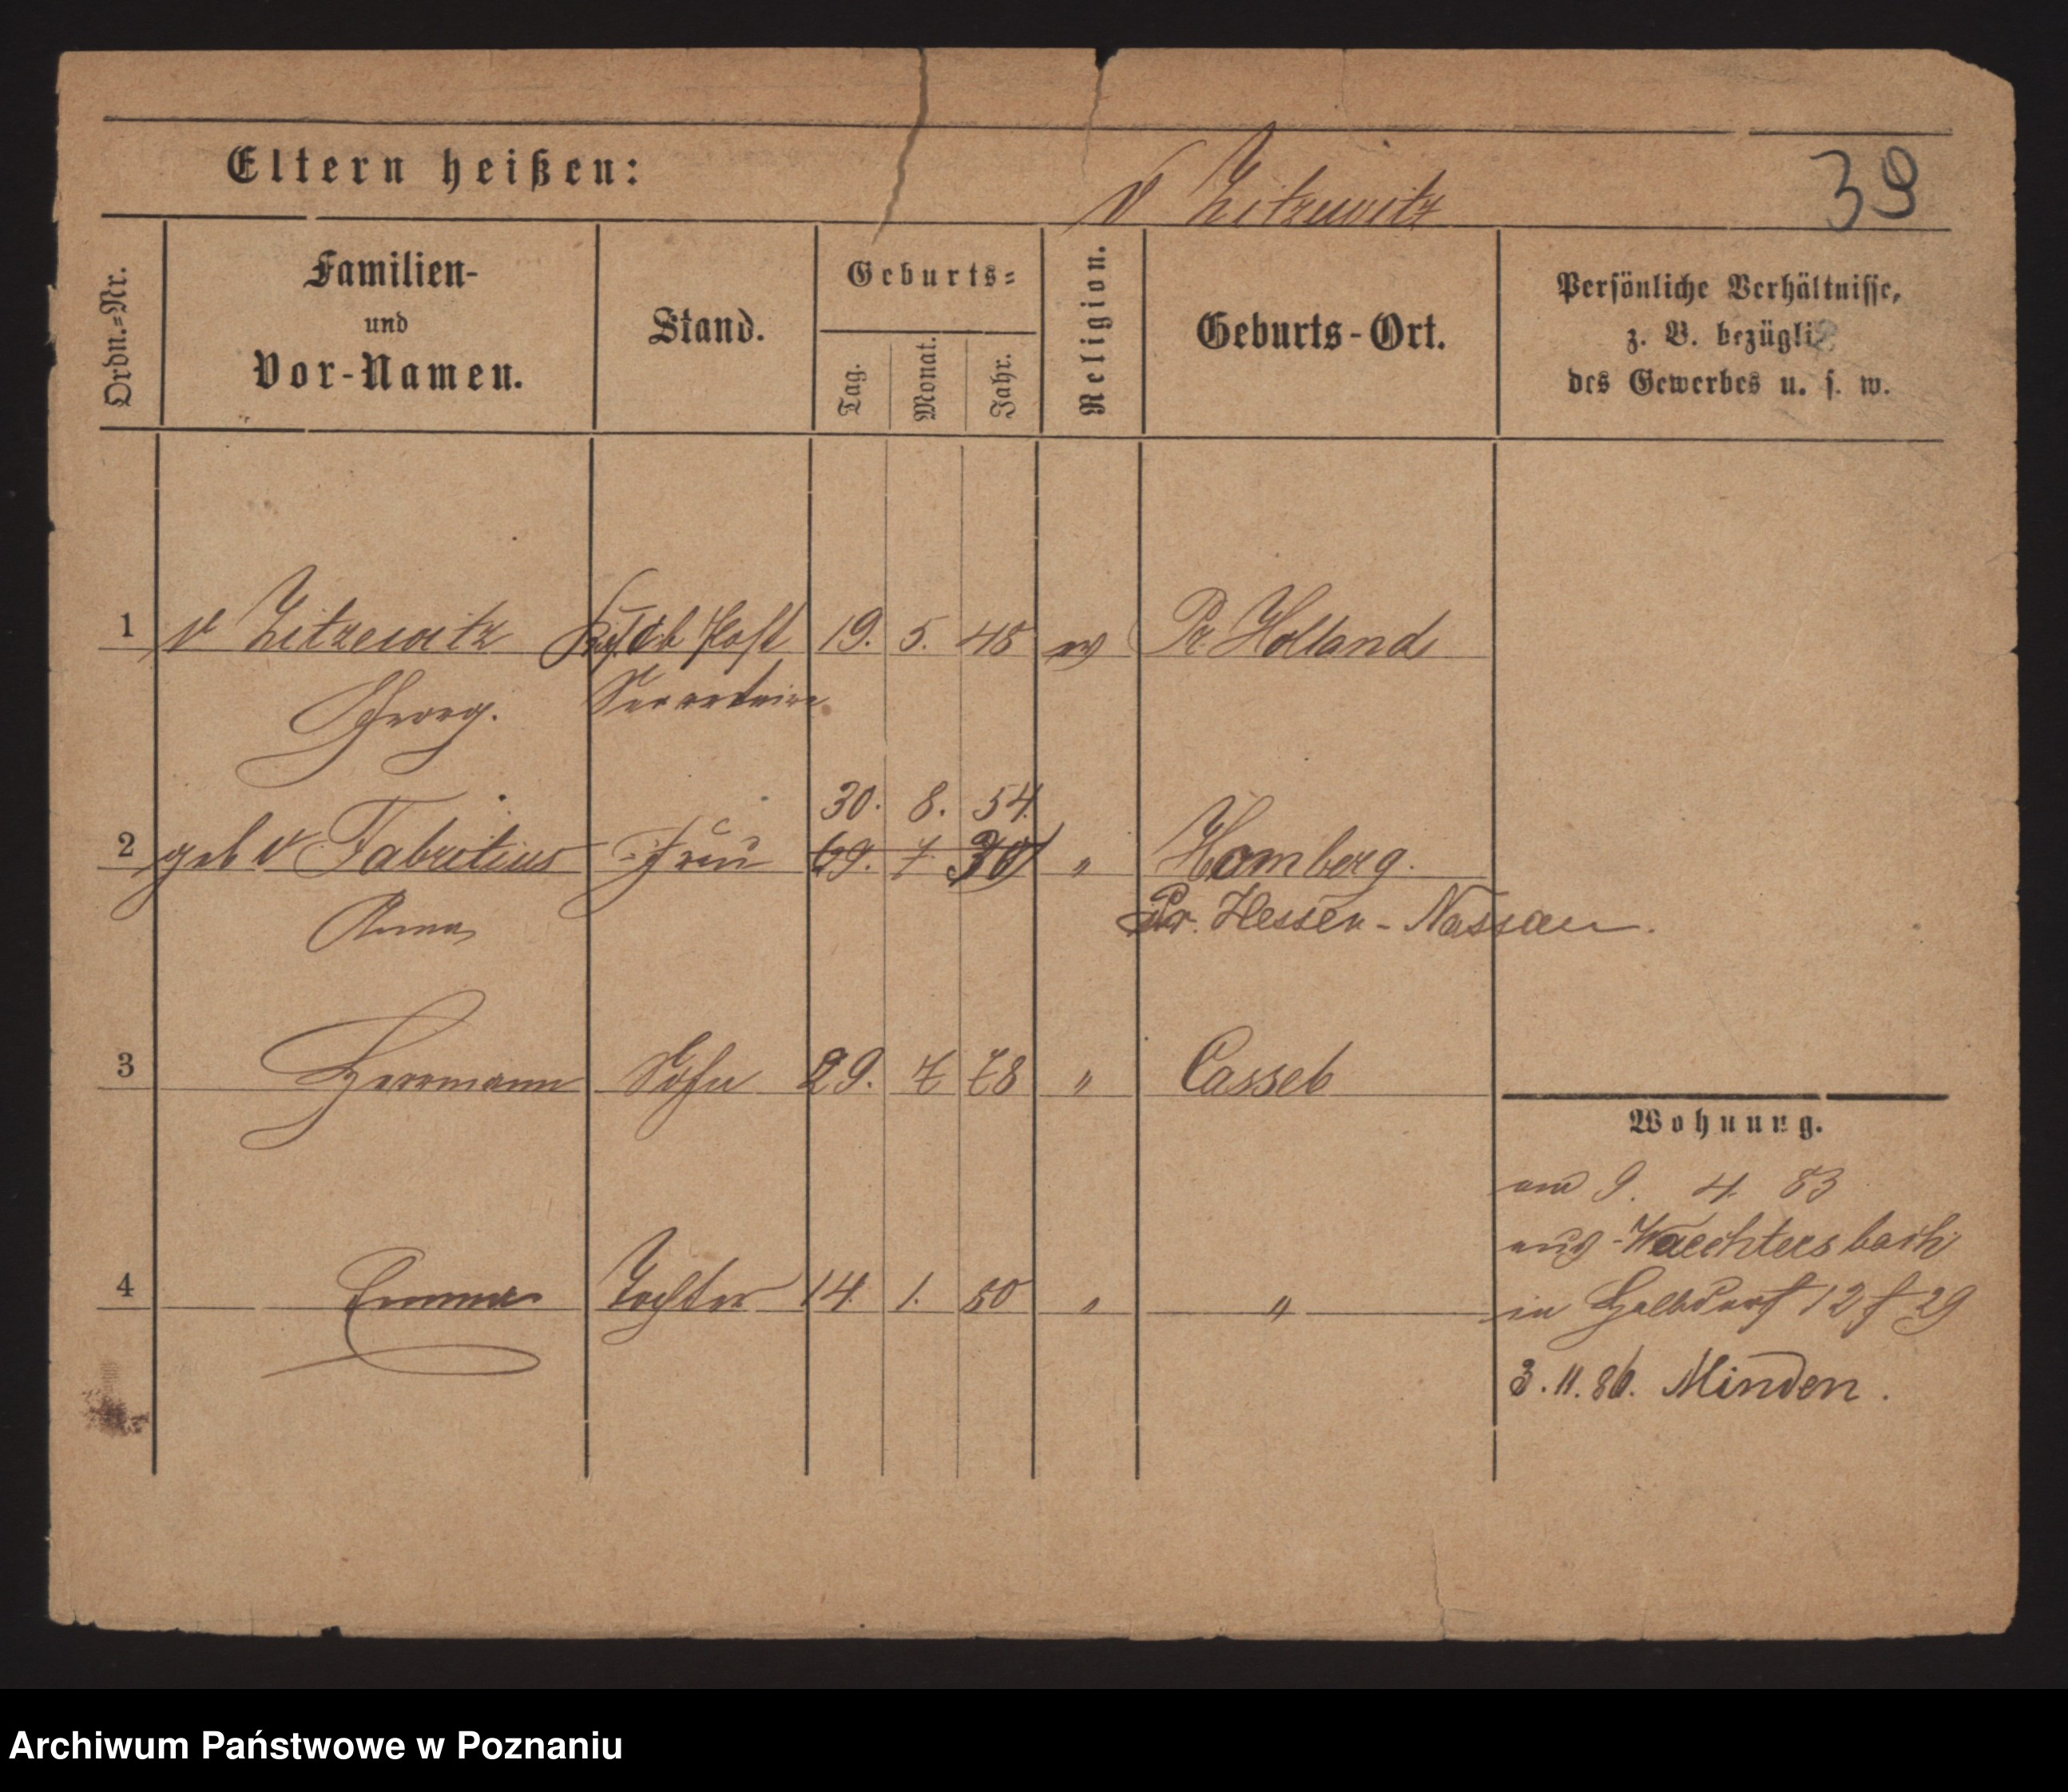 Eltern heißen:
v Zitzewitz
39
Ordn.-Nr.
Familien-
und
Vor-Namen.
Stand.
Geburts-
Tag.
Monat.
Jahr.
Religion.
Geburts-Ort.
Persönliche Verhältnisse,
z. B. bezügli
des Gewerbes u. s. w.
1 v Zitzewitz Post 19. 5. 45 ev Pr. Holland
Georg. Secretair
30. 8. 54.
2 geb v Fabritius Frau 69. 7. 30 " Homberg.
Anna Pr. Hessen-Nassau.
3 Herrmann Sohn 29. 7 78 " Cassel
Wohnung.
am 9. 4. 83
aus Waechtersbach
4 Emma Tochter 14. 1. 80 " "
in Halbdorf 12 f 29
3. 11. 86. Minden.
Archiwum Państwowe w Poznaniu